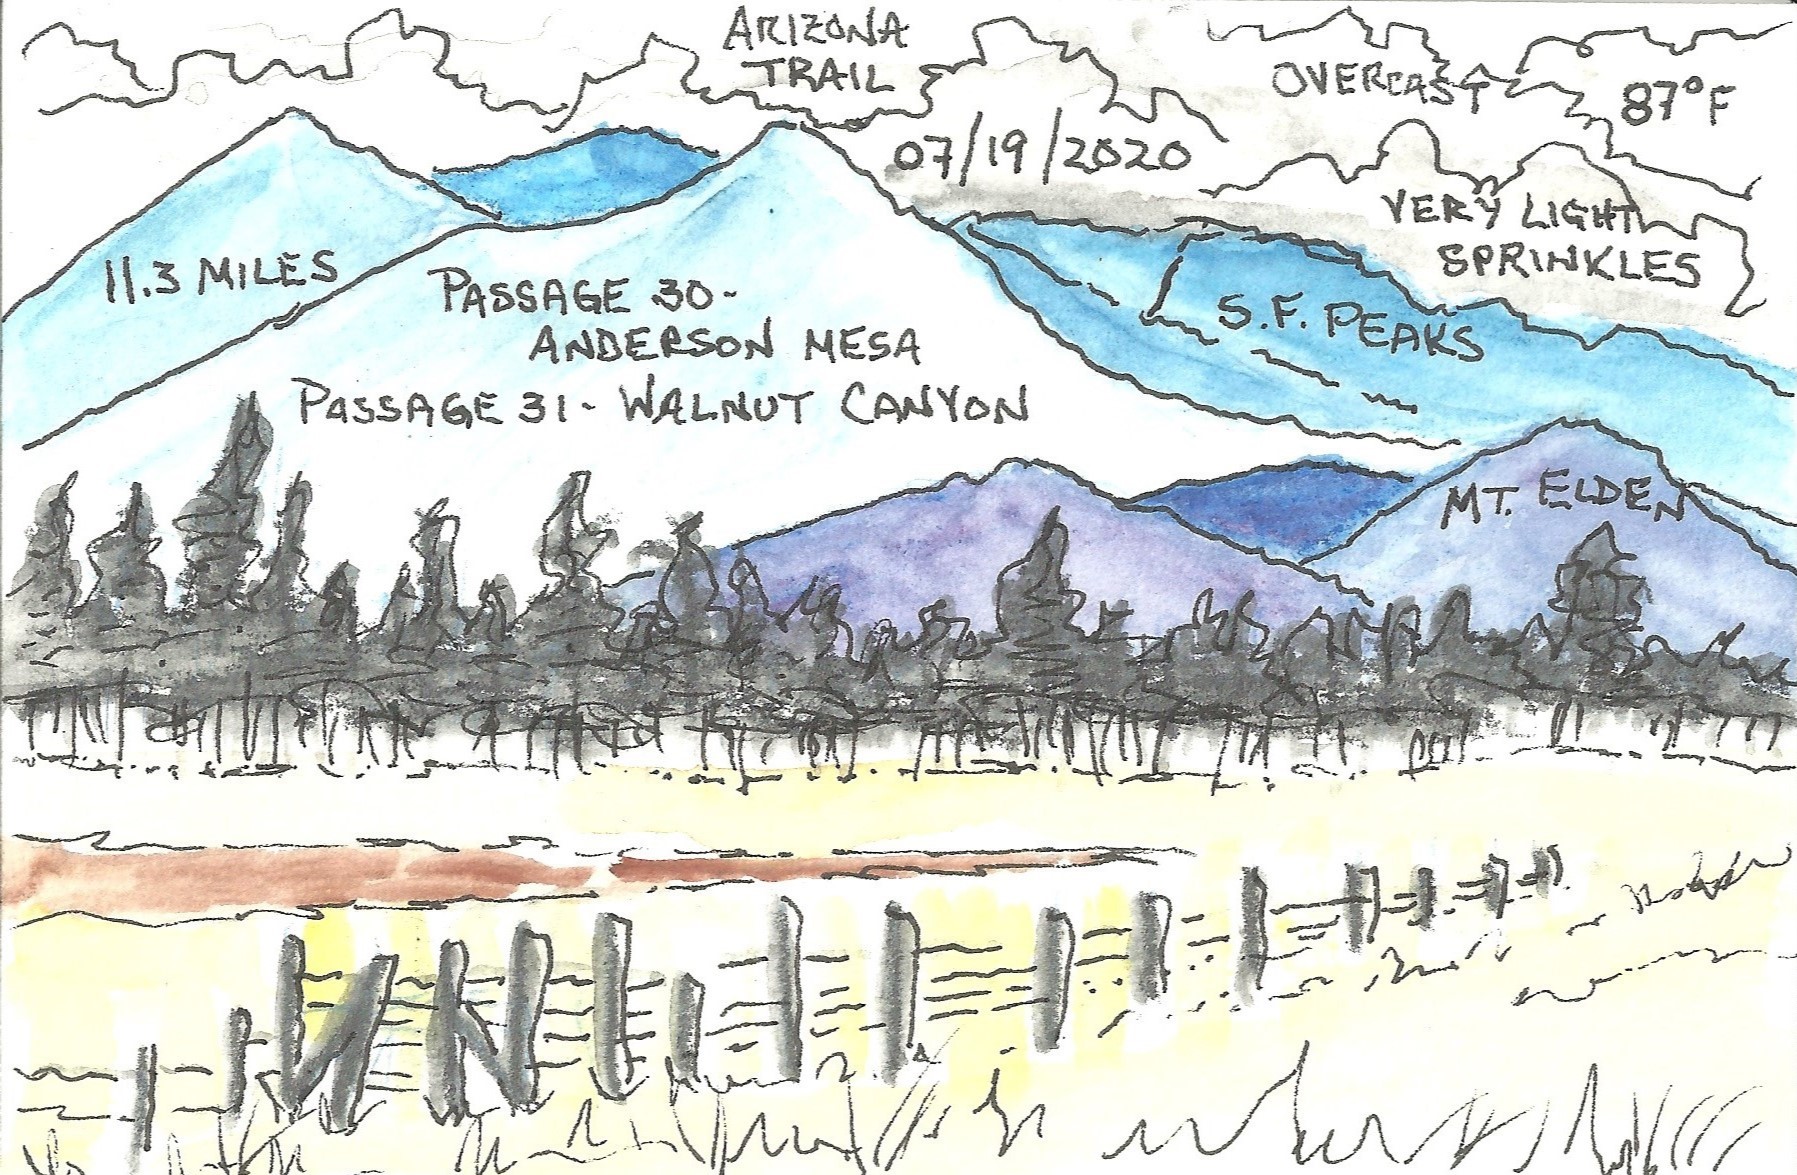 ARIZONA
TRAIL
OVERCAST
87°F
07/19/2020
VERY LIGHT
SPRINKLES
11.3 MILES
PASSAGE 30-
ANDERSON MESA
PASSAGE 31- WALNUT CANYON
S.F. PEAKS
MT. ELDEN